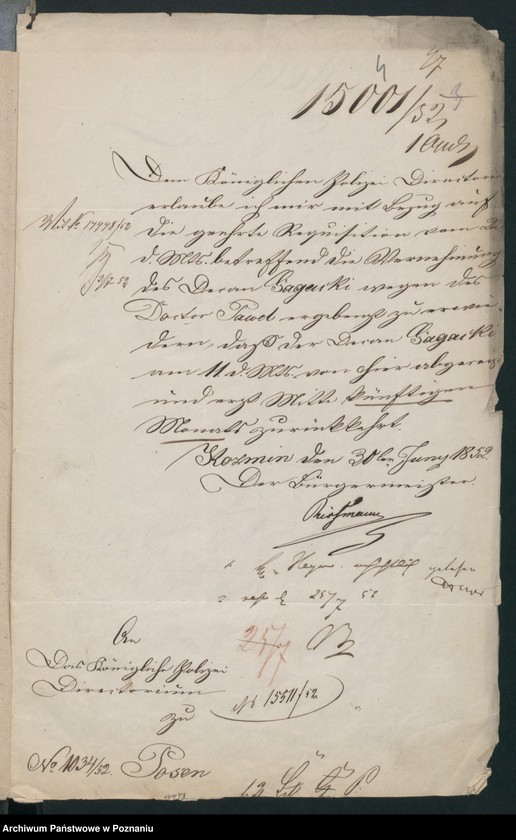 4 27
15001/52 3/7
1 Aud
Dem Königlichen Polizei Directorium
erlaube ich mir mit Bezug auf
3 Lit. K. 14448/52 die geehrte Requisition vom
d. Mts. betreffend die Vernehmung
des Decan Gagacki wegen des
Doctor Pawel ergebenst zu erwie-
dern, daß der Decan Gagacki
am 11 d. Mts von hier abgereist
und erst Mitte künftigen
Monats zurückkehrt.
Kozmin den 30ten Juny 1852.
Der Bürgermeister
gelesen
25/7 52
25/7
An
Das Königliche Polizei
Directorium
15511/52
zu
No 1034/52. Posen